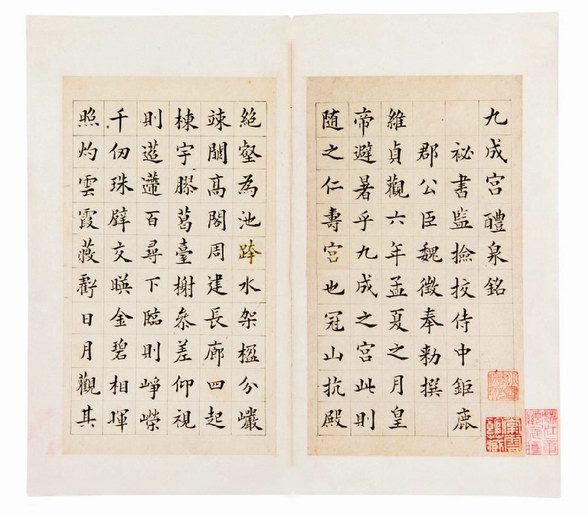 九成宮醴泉銘
祕書監撿挍侍中鉅鹿
郡公臣魏徵奉勑撰
維貞觀六年孟夏之月皇
帝避暑乎九成之宮此則
随之仁壽宮也冠山抗殿
絕壑為池跨水架楹分巖
竦闕高閣周建長廊四起
棟宇膠葛臺榭叅差仰視
則迢遰百尋下臨則崢嶸
千仞珠壁交暎金碧相暉
照灼雲霞蔽虧日月觀其